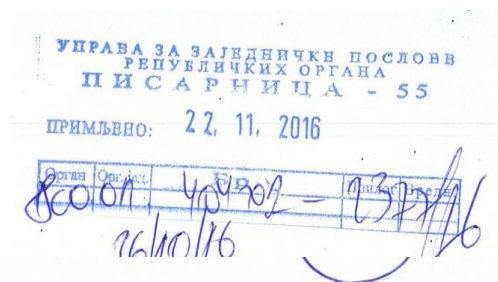 УПРАВА ЗА ЗАЈЕДНИЧКЕ ПОСЛОВЕ
РЕПУБЛИЧКИХ ОРГАНА
ПИСАРНИЦА - 55
ПРИМЉЕНО: 22. 11. 2016
Орган Орг.јед. Број Прилог Вредн
011 404302 - 2377/16
26/10/16